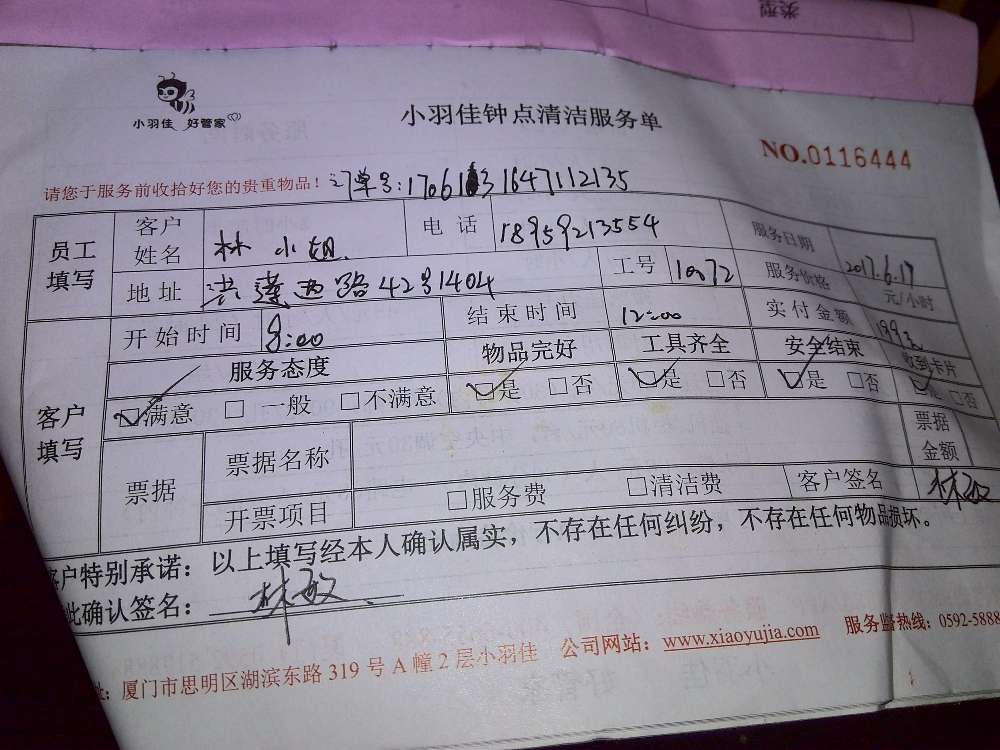 类型
小羽佳 好管家
小羽佳钟点清洁服务单
NO.0116444
请您于服务前收拾好您的贵重物品！订单号:1706131647112135
员工填写 客户姓名 林小姐 电话 18959213554 服务日期 2017.6.17
地址 洪莲西路42号1404 工号 10072 服务价格 元/小时
客户填写 开始时间 8:00 结束时间 12:00 实付金额 199元
服务态度 物品完好 工具齐全 安全结束 收到卡片
☑满意 □一般 □不满意 ☑是 □否 ☑是 □否 ☑是 □否 ☑是 □否
票据 票据名称 票据金额
开票项目 □服务费 □清洁费 客户签名 林敏
客户特别承诺：以上填写经本人确认属实，不存在任何纠纷，不存在任何物品损坏。
此确认签名： 林敏
址：厦门市思明区湖滨东路319号A幢2层小羽佳 公司网站：www.xiaoyujia.com 服务监督热线：0592-5888